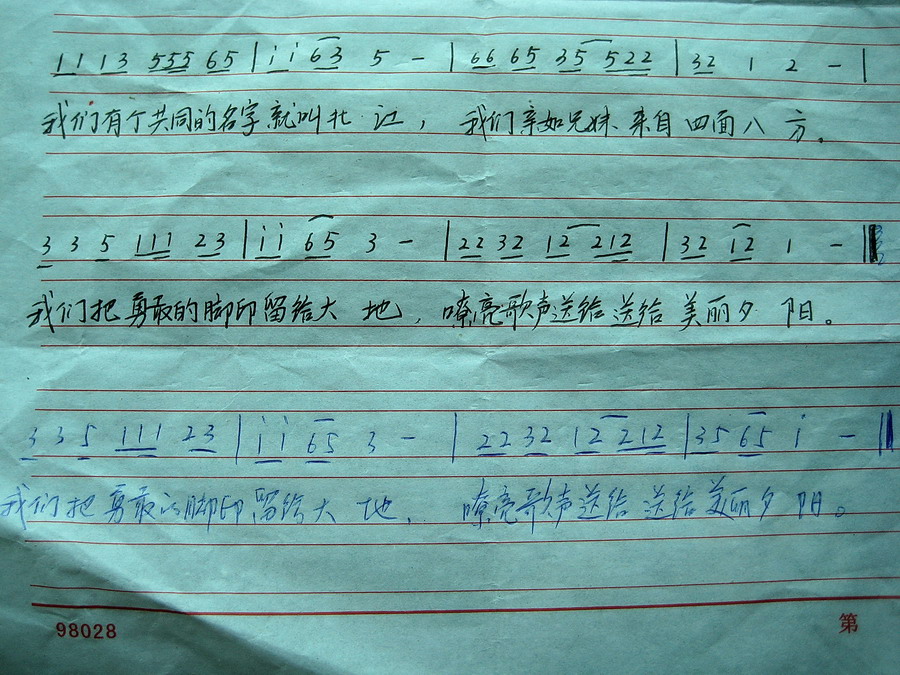 1 1 1 3 5 5 5 6 5 | i i 6 3 5 - | 6 6 6 5 3 5 5 2 2 | 3 2 1 2 - |
我们有个共同的名字就叫北 边， 我们亲如兄妹 来自四面八 方。
3 3 5 1 1 1 2 3 | i i 6 5 3 - | 2 2 3 2 1 2 2 1 2 | 3 2 1 2 1 - ‖
我们把勇敢的脚印留给大 地， 嘹亮歌声送给 送给 美丽夕 阳。
3 3 5 1 1 1 2 3 | i i 6 5 3 - | 2 2 3 2 1 2 2 1 2 | 3 5 6 5 i - ‖
我们把勇敢的脚印留给大 地， 嘹亮歌声送给 送给美丽夕 阳。
98028 第